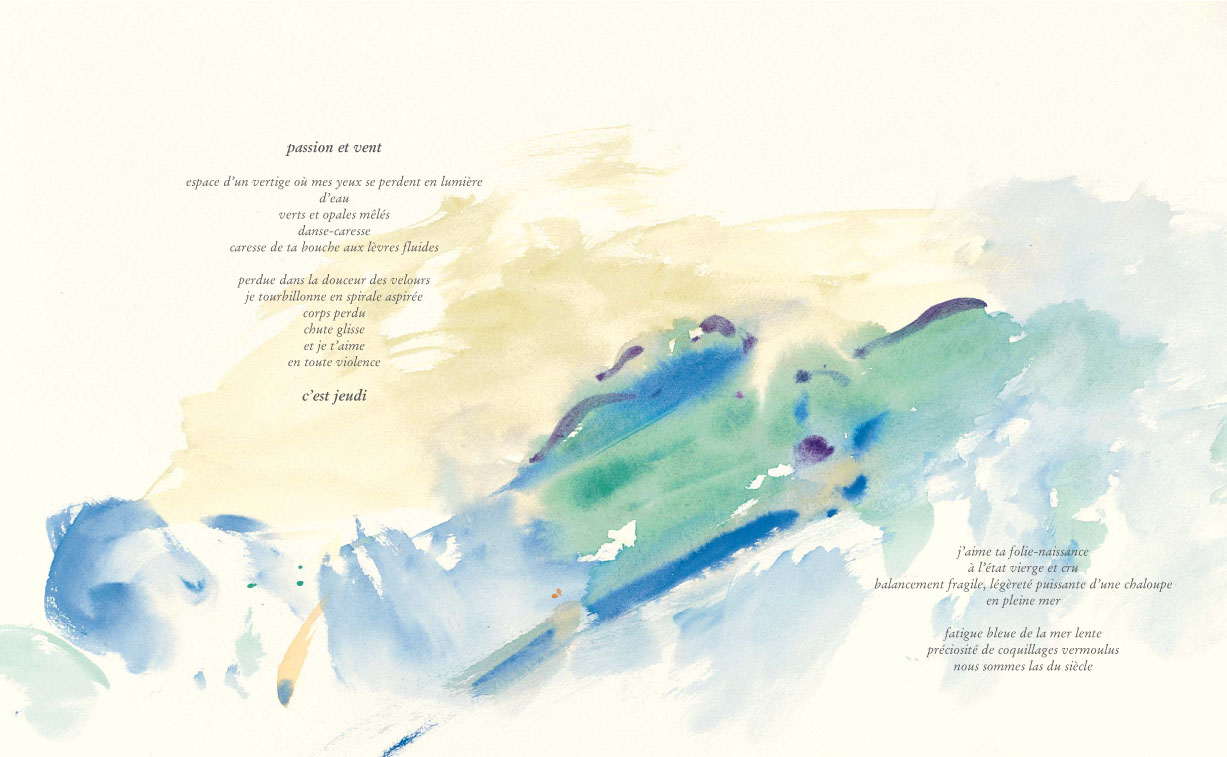 passion et vent
espace d’un vertige où mes yeux se perdent en lumière
d’eau
verts et opales mêlés
danse-caresse
caresse de ta bouche aux lèvres fluides
perdue dans la douceur des velours
je tourbillonne en spirale aspirée
corps perdu
chute glisse
et je t’aime
en toute violence
c’est jeudi
j’aime ta folie-naissance
à l’état vierge et cru
balancement fragile, légèreté puissante d’une chaloupe
en pleine mer
fatigue bleue de la mer lente
préciosité de coquillages vermoulus
nous sommes las du siècle